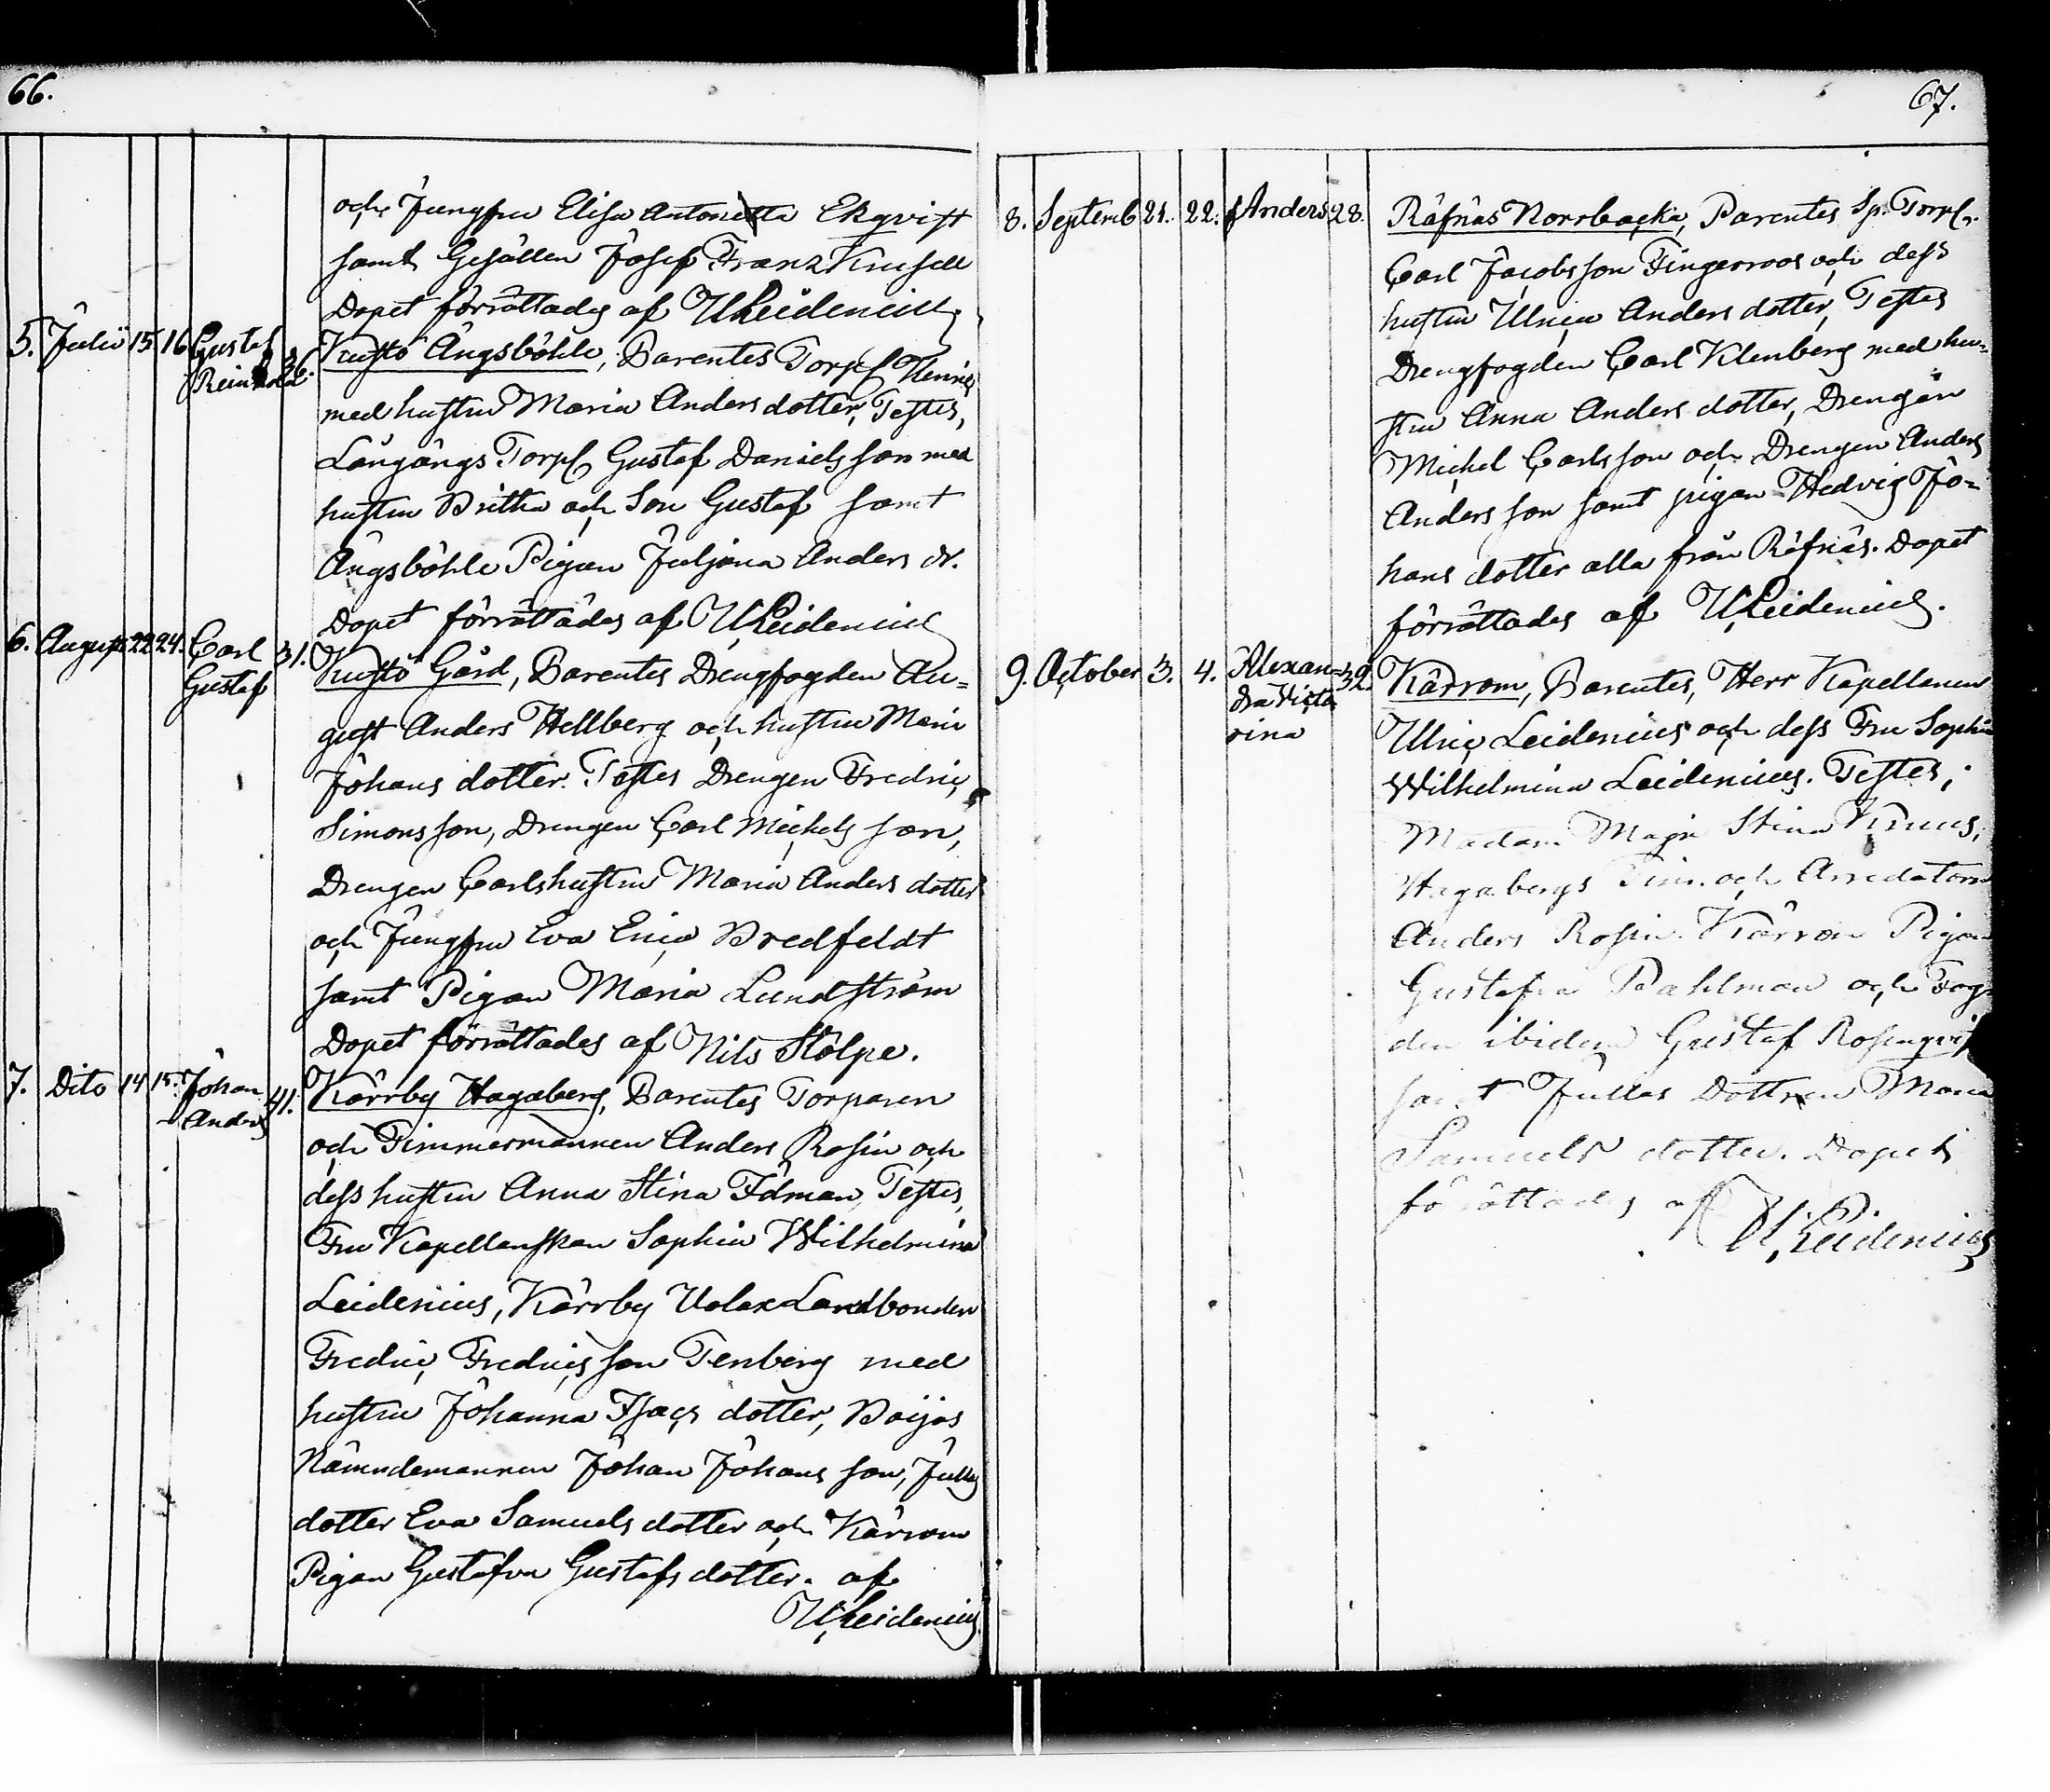 66.
och Jungfru Elisa Antonetta Ekqvist
samt Gesällen Josef Franz Krusell
Dopet förrättades af U Leidenius.
5. Julii 15 16 Gustaf Reinhold 36. Kustö Ängsböhle, Parentes Torp. Henric
med hustru Maria Anders dotter, Testes,
Långängs Torp. Gustaf Daniels son med
hustru Britha och Son Gustaf samt
Ängsböhle Pigan Juljana Anders dr.
Dopet förrättades af U Leidenius
6. August 22 24. Carl Gustaf 31. Kustö Gård, Parentes Drengfogden Au=
gust Anders Hellberg och hustru Maria
Johans dotter. Testes Drengen Fredric
Simons son, Drengen Carl Michels son,
Drengen Carls hustru Maria Anders dotter
och Jungfru Eva Erica Bredfeldt
samt Pigan Maria Lundström
Dopet förrättades af Nils Stolpe.
7. Dito 14 15. Johan Anders 41. Kärrby Hagaberg, Parentes Torparen
och Timmermannen Anders Rosin och
dess hustru Anna Stina Idman, Testes,
Fru Kapellanskan Sophia Wilhelmina
Leidenius, Kärrby Uolax Landbonden
Fredric Fredrics son Tenberg med
hustru Johanna Isacs dotter, Boijas
Nämndemannen Johan Johans son, Jullas
dotter Eva Samuels dotter och Kärrom
Pigan Gustafva Gustafs dotter. af
U Leidenius
67.
8. Septemb 21. 22. Anders 28. Räfnäs Norrbacka, Parentes Sp. Torp.
Carl Jacobs son Fingerroos och dess
hustru Ulrica Anders dotter, Testes
Drengfogden Carl Klenberg med hu=
stru Anna Anders dotter, Drengen
Michel Carls son och Drengen Anders
Anders son samt pigan Hedvig Jo=
hans dotter alla från Räfnäs. Dopet
förrättades af U Leidenius.
9. October 3. 4. Alexan= dra Victo rina 32. Kärrom, Parentes, Herr Kapellanen
Ulric Leidenius och dess Fru Sophia
Wilhelmina Leidenius. Testes;
Madam Maja Stina Kruus,
Hagabergs Tim. och Arredatorn
Anders Rosin. Kärrom Pigan
Gustafva Pahlman och Fog=
den ibidem Gustaf Rosenqvist
samt Jullas Dottren Maria
Samuels dotter. Dopet
förrättades af
U, Leidenius